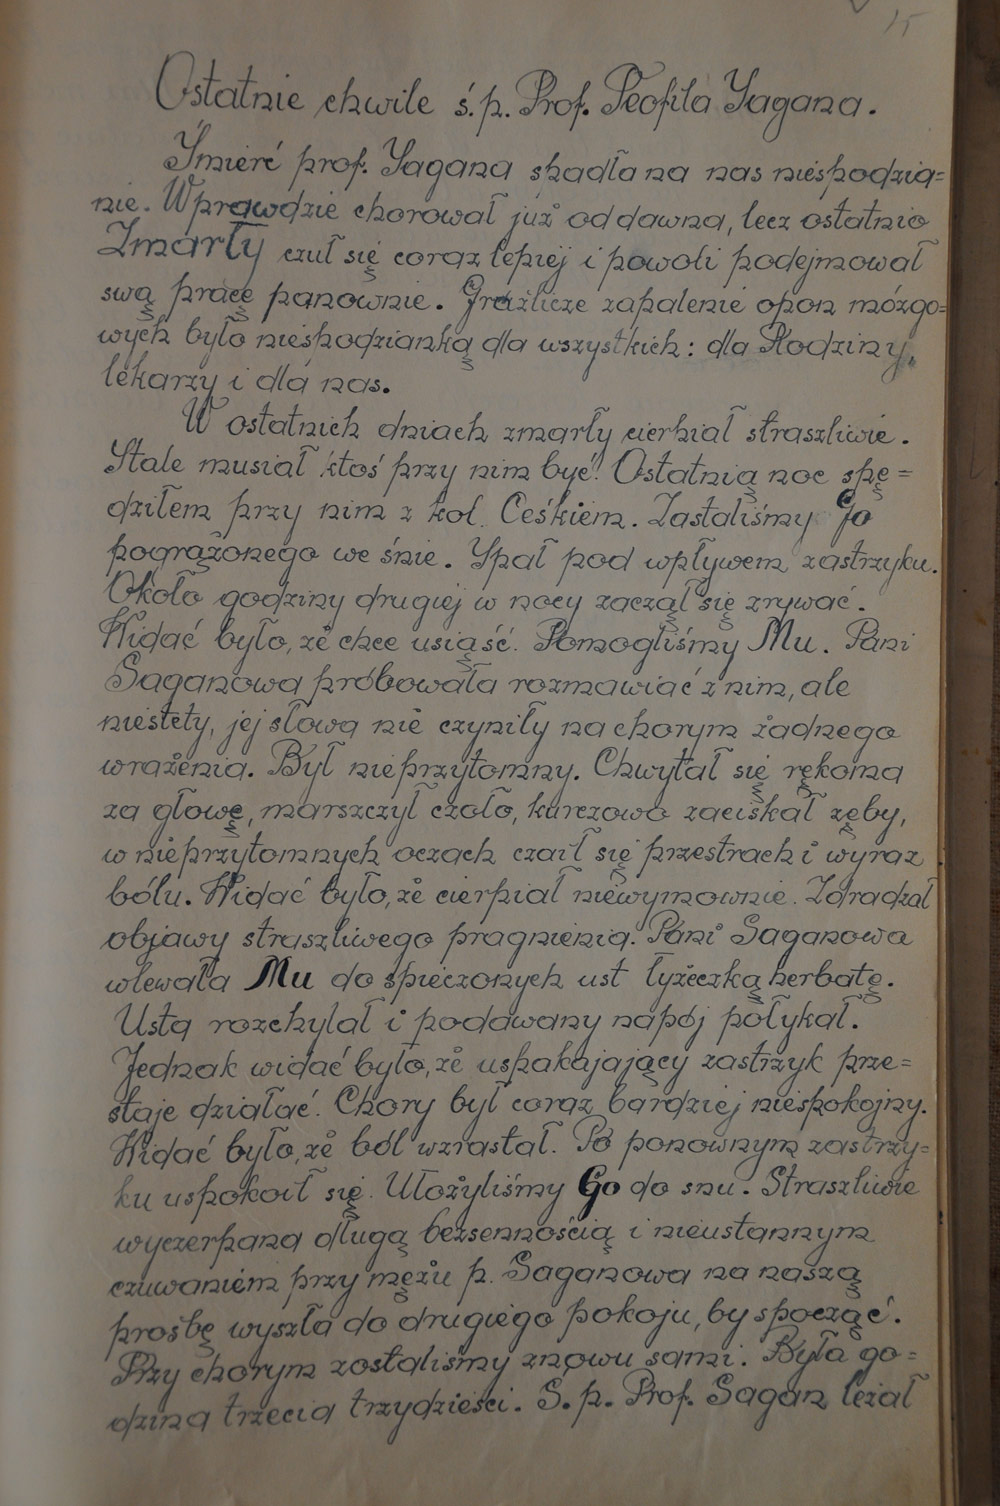 15
Ostatnie chwile ś.p. Prof. Teofila Sagana.
Śmierć prof. Sagana spadła na nas niespodzia=
nie. Wprawdzie chorował już od dawna, lecz ostatnio
Zmarły czuł się coraz lepiej i powoli podejmował
swą pracę panownie. Gruźlicze zapalenie opon mózgo=
wych było niespodzianką dla wszystkich: dla Rodziny,
lekarzy i dla nas.
W ostatnich dniach zmarły cierpiał straszliwie.
Stale musiał ktoś przy nim być. Ostatnią noc spę=
dziłem przy nim z kol. Ceśkiem. Zastaliśmy Go
pogrążonego we śnie. Spał pod wpływem zastrzyku.
Około godziny drugiej w nocy zaczął się zrywać.
Widać było, że chce usiąść. Pomogliśmy Mu. Pani
Saganowa próbowała rozmawiać z nim, ale
niestety, jej słowa nie czyniły na chorym żadnego
wrażenia. Był nieprzytomny. Chwytał się rękoma
za głowę, marszczył czoło, kurczowo zaciskał zęby,
w nieprzytomnych oczach czaił się przestrach i wyraz
bólu. Widać było, że cierpiał niewymownie. Zdradzał
objawy straszliwego pragnienia. Pani Saganowa
wlewała Mu do spieczonych ust łyżeczką herbatę.
Usta rozchylał i podawany napój połykał.
Jednak widać było, że uspakajający zastrzyk prze=
staje działać. Chory był coraz bardziej niespokojny.
Widać było, że ból wzrastał. Po ponownym zastrzy=
ku uspokoił się. Ułożyliśmy Go do snu. Straszliwie
wyczerpana długą bezsennością i nieustannym
czuwaniem przy mężu p. Saganowa na naszą
prośbę wyszła do drugiego pokoju, by spocząć.
Przy chorym zostaliśmy znowu sami. Była go=
dzina trzecia trzydzieści. Ś.p. Prof. Sagan leżał